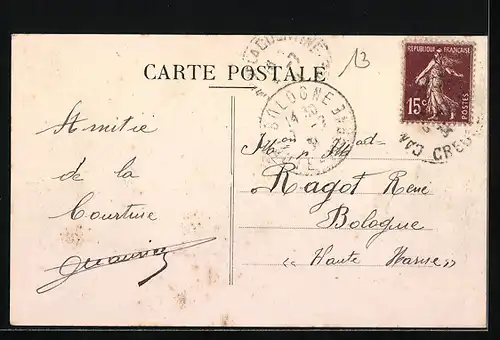 13
CARTE POSTALE
REPUBLIQUE FRANÇAISE
15c
POSTES
BOLOGNE
Amitié
de la
Courtine
Mon Mad
Ragot René
Bologne
"Haute Marne"